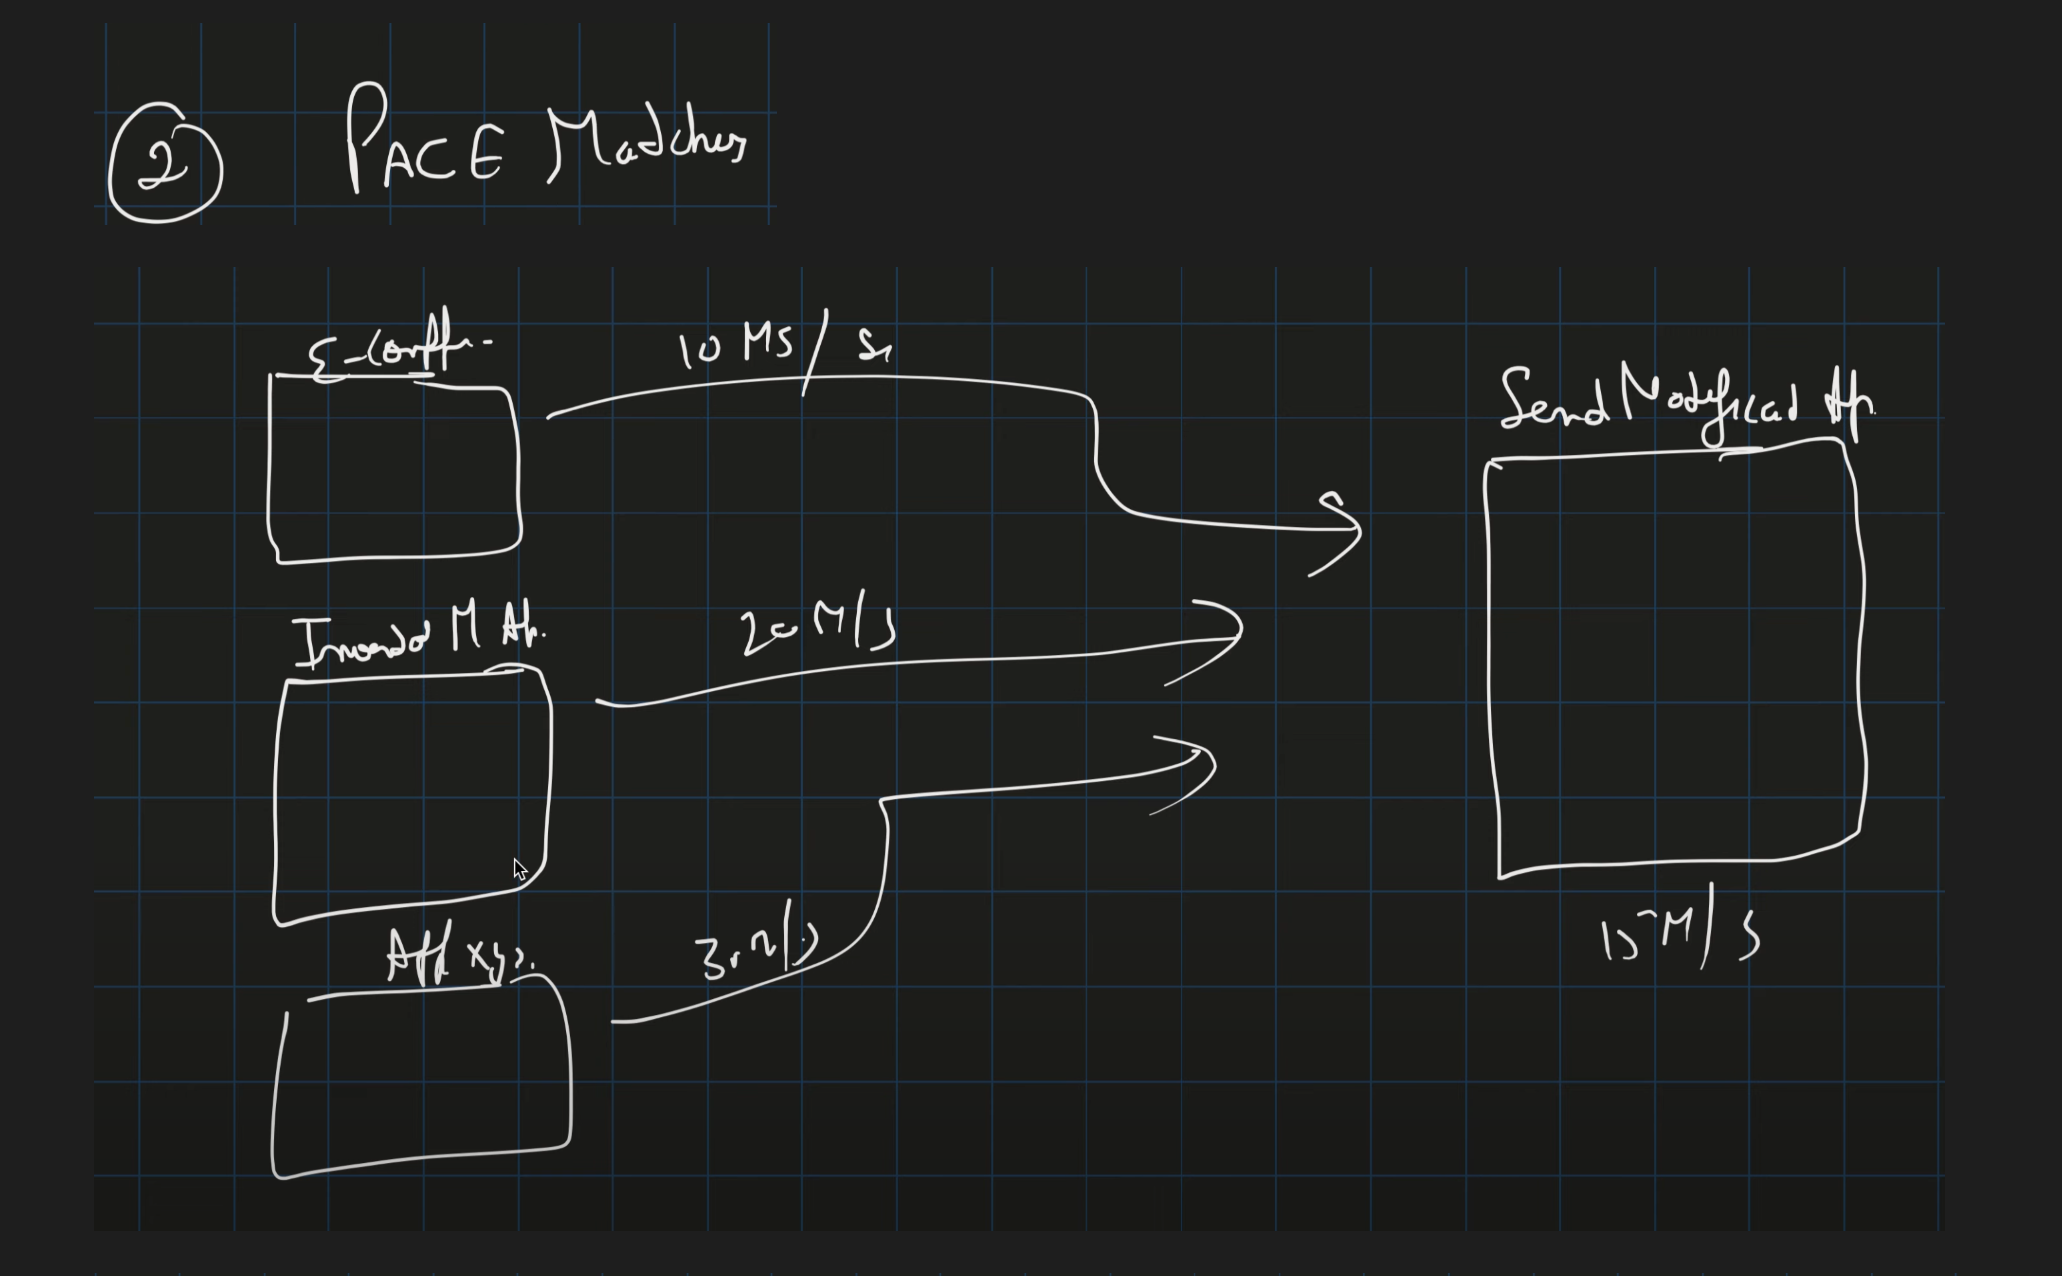 2 PACE Matching
E-Comm App.
10 MS/ Sec
Send Notificat App.
Inventot M Ap.
20 M/s
App xyz.
30 M/s
15 M/s